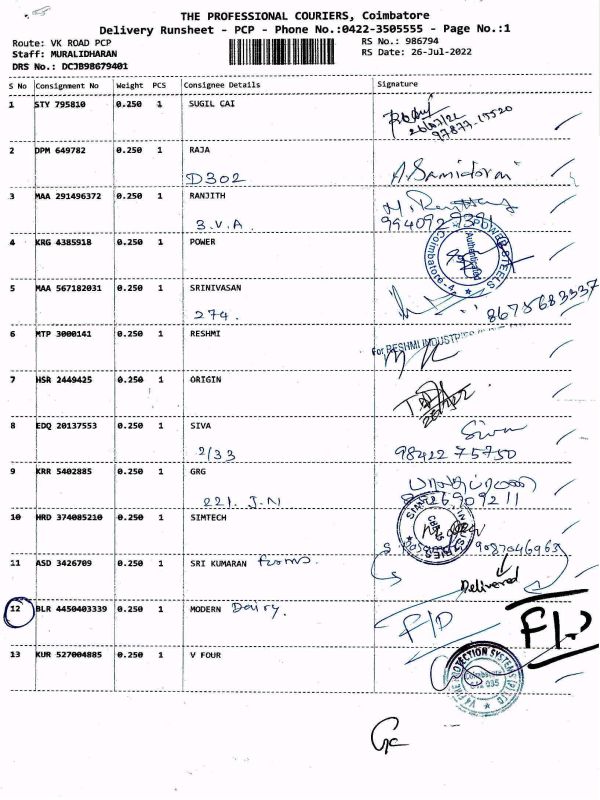 THE PROFESSIONAL COURIERS, Coimbatore
Delivery Runsheet - PCP - Phone No.:0422-3505555 - Page No.:1
Route: VK ROAD PCP
Staff: MURALIDHARAN
DRS No.: DCJB98679401
RS No.: 986794
RS Date: 26-Jul-2022
S No Consignment No Weight PCS Consignee Details Signature
1 STY 795810 0.250 1 SUGIL CAI
26/07/22
97877-15520
2 DPM 649782 0.250 1 RAJA
D302 A. Samidorai
3 MAA 291496372 0.250 1 RANJITH
3.V.A.
4 KRG 4385918 0.250 1 POWER
POWER STEELS
Authenticated
Coimbatore-4
5 MAA 567182031 0.250 1 SRINIVASAN
274. 8675683337
6 MTP 3000141 0.250 1 RESHMI
For RESHMI INDUSTRIES
7 HSR 2449425 0.250 1 ORIGIN
8 EDQ 20137553 0.250 1 SIVA Siva
2/33 98422 75750
9 KRR 5402885 0.250 1 GRG
221. J.N
10 HRD 374085210 0.250 1 SIMTECH
SIMTECH INDUSTRIES
9087046963
11 ASD 3426709 0.250 1 SRI KUMARAN farms.
Delivered
12 BLR 4450403339 0.250 1 MODERN Dairy. F/D F/D
13 KUR 527004885 0.250 1 V FOUR
V4 FIRE PROTECTION SYSTEMS (P) LTD
Coimbatore
641 035